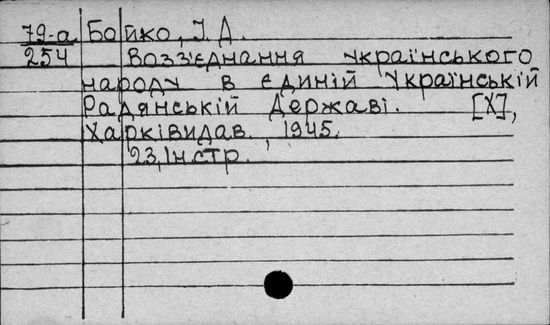 79-а Бойко, І. Д.
254 Возз'єднання українського
народу в єдиній Українській
Радянській Державі. [Х],
Харківидав., 1945.
23, Iн стр.